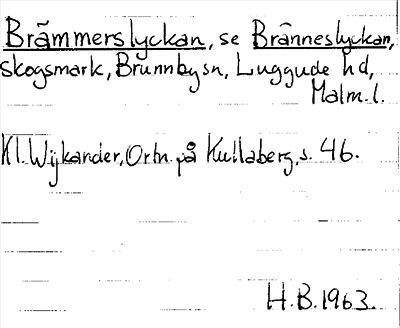 Brämmerslyckan, se Bränneslyckan,
skogsmark, Brunnbysn, Luggude hd,
Malm. l.
Kl. Wijkander, Ortn. på Kullaberg, s. 46.
H. B. 1963.